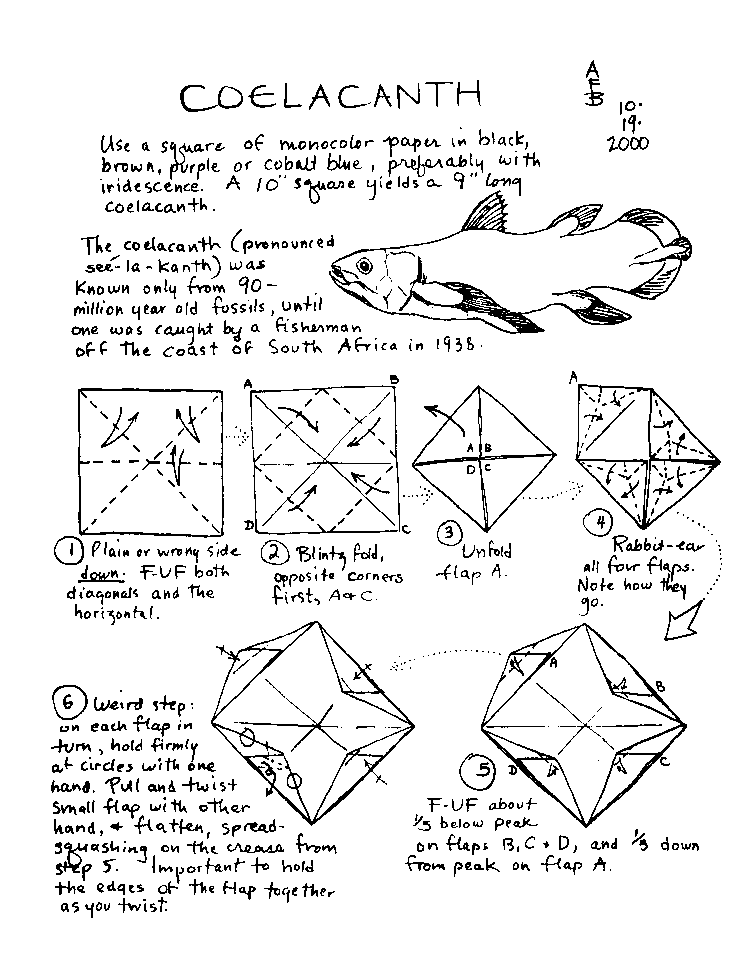 COELACANTH
AFB
10.
19.
2000
Use a square of monocolor paper in black,
brown, purple or cobalt blue, preferably with
iridescence. A 10" square yields a 9" long
coelacanth.
The coelacanth (pronounced
see-la-kanth) was
known only from 90-
million year old fossils, until
one was caught by a fisherman
off the coast of South Africa in 1938.
A B
D C
A B
D C
A
1 Plain or wrong side
down. F-UF both
diagonals and the
horizontal.
2 Blintz fold,
opposite corners
first, A & C.
3 Unfold
flap A.
4 Rabbit-ear
all four flaps.
Note how they
go.
A
B
D
C
5
F-UF about
1/3 below peak
on flaps B, C & D, and 1/3 down
from peak on flap A.
6 Weird step:
on each flap in
turn, hold firmly
at circles with one
hand. Pull and twist
small flap with other
hand, & flatten, spread-
squashing on the crease from
step 5. Important to hold
the edges of the flap together
as you twist.